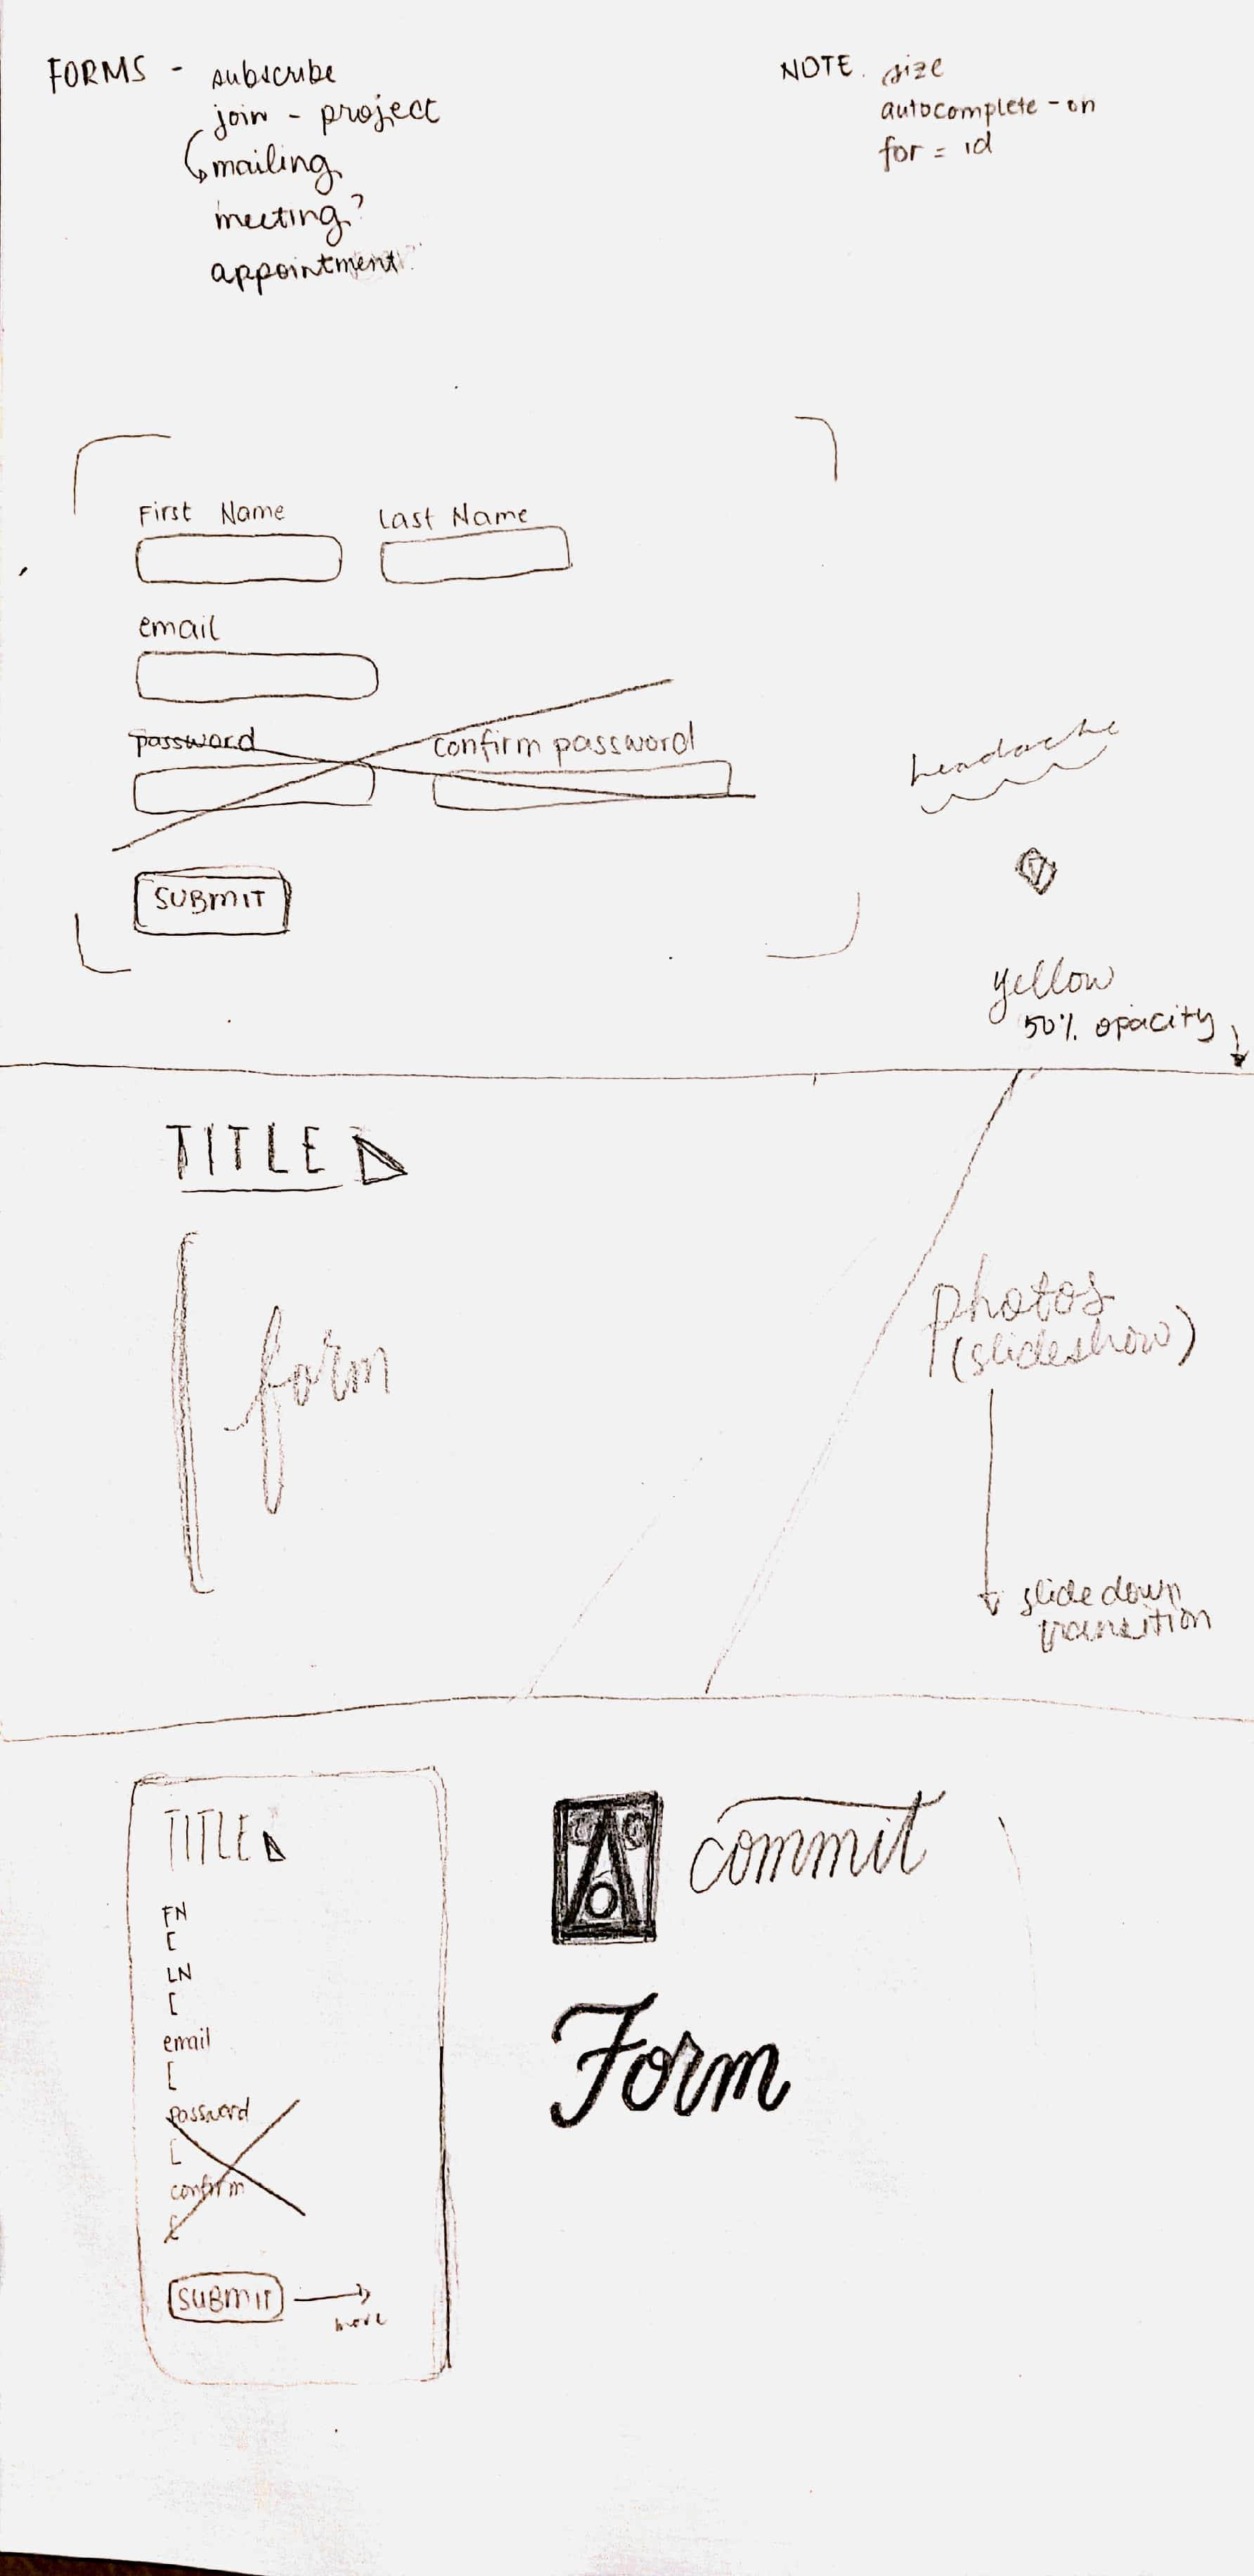 FORMS - subscribe
join - project
mailing
meeting?
appointment
NOTE. size
autocomplete - on
for = id
First Name Last Name
email
password confirm password
SUBMIT
headache
yellow
50% opacity
TITLE
form
photos
(slideshow)
slide down
transition
TITLE
FN
[
LN
[
email
[
password
[
confirm
[
SUBMIT
move
commit
Form